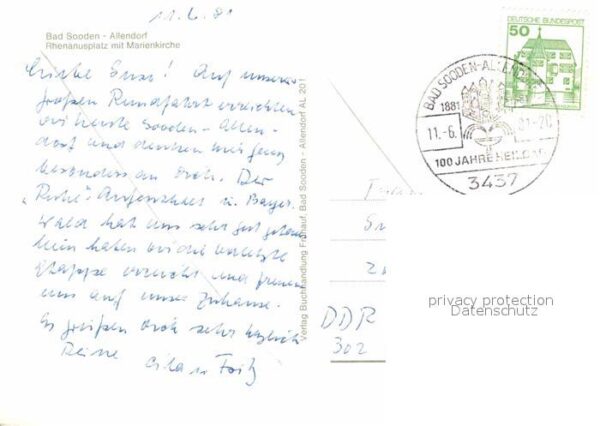 11.6.81
Bad Sooden - Allendorf
Rhenanusplatz mit Marienkirche
Liebe Susi! Auf unserer
großen Rundfahrt erreichten
wir heute Sooden-Allen-
dorf und denken
besonders an Dich. Der
"Ruhe"-Aufenthalt i. Bayer.
Wald hat uns sehr gut getan
haben wir die vorletzte
Etappe erreicht und freuen
uns auf unser Zuhause.
Es grüßen Dich sehr herzlich
Deine
und Fritz
Verlag Buchhandlung Frühauf, Bad Sooden - Allendorf AL 201
DEUTSCHE BUNDESPOST
50
BAD SOODEN-ALLEND
1881
11.-6.
81-20
100 JAHRE HEILBAD
3437
DDR
302
privacy protection
Datenschutz